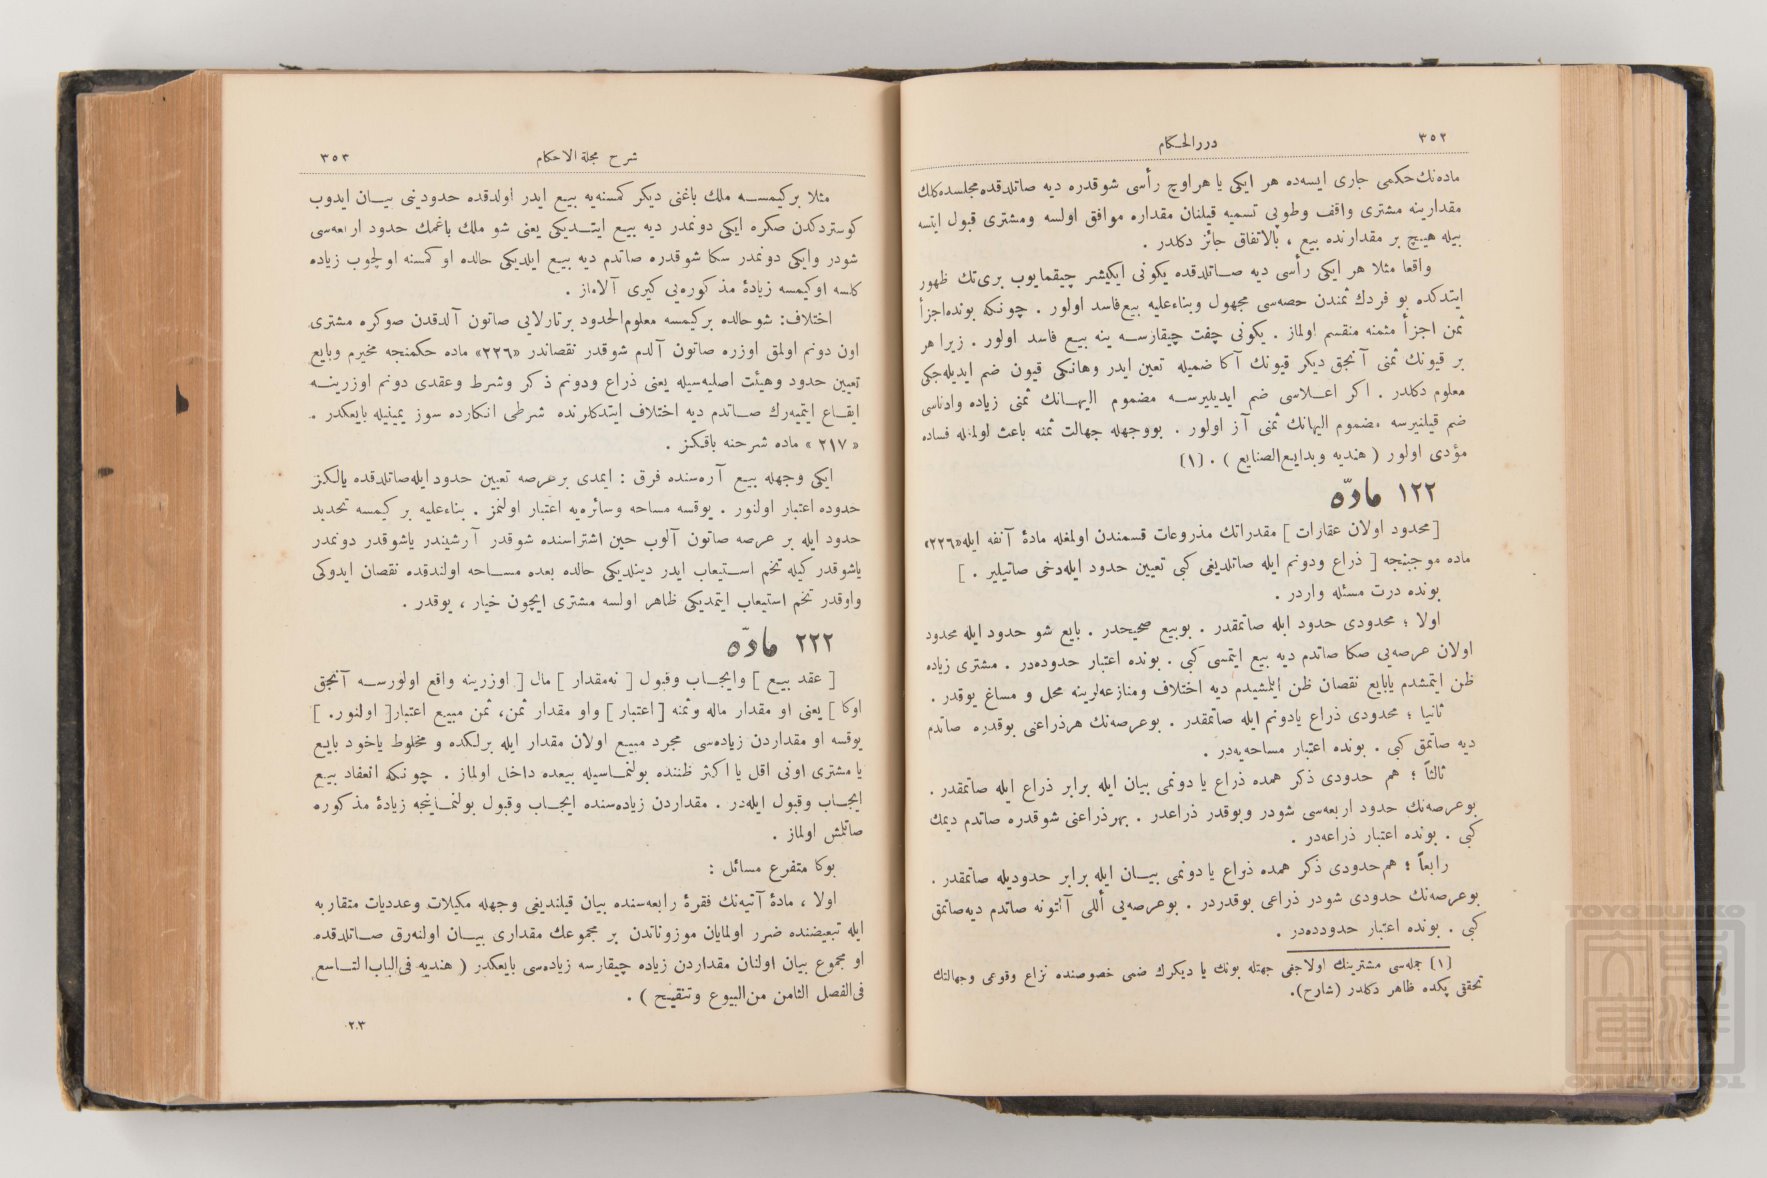 ٣٥٢
دررالحكام
ماده‌نك حكمى جارى ايسه‌ده هر ايكى يا هر اوچ رأسى شو قدره ديه صاتلدقده مجلسده كلك
مقدارينه مشترى واقف وطوبى تسميه قيلنان مقداره موافق اولسه ومشترى قبول ايتسه
بيله هيچ بر مقدارنده بيع ، بالاتفاق جائز دكلدر .
واقعا مثلا هر ايكى رأسى ديه صاتلدقده يكونى ايكيشر چيقمايوب برى‌تك ظهور
ايتدكده بو فردك ثمندن حصه‌سى مجهول وبناءعليه بيع فاسد اولور . چونكه بونده اجزأ
ثمن اجزأ مثمنه منقسم اولماز . يكونى چفت چيقارسه ينه بيع فاسد اولور . زيرا هر
بر قيونك ثمنى آنجق ديكر قيونك آكا ضميله تعين ايدر وهانكى قيون ضم ايديله‌جكى
معلوم دكلدر . اكر اعلاسى ضم ايديليرسه مضموم اليهانك ثمنى زياده وادناسى
ضم قيلنيرسه مضموم اليهانك ثمنى آز اولور . بووجهله جهالت ثمنه باعث اولمغله فساده
مؤدى اولور ( هنديه وبدايع‌الصنايع ) . (١)
١٢٢ مادّه
[محدود اولان عقارات] مقدراتك مذروعات قسمندن اولمغله مادۀ آنفه ايله «٢٢٦»
ماده موجبنجه [ ذراع ودونم ايله صاتلديغى كبى تعيين حدود ايله‌دخى صاتيلير . ]
بونده درت مسئله واردر .
اولا ؛ محدودى حدود ايله صاتمقدر . بوبيع صحيحدر . بايع شو حدود ايله محدود
اولان عرصه‌يى صكا صاتدم ديه بيع ايتمسى كبى . بونده اعتبار حدوده‌در . مشترى زياده
ظن ايتمشدم يابايع نقصان ظن ايلمشيدم ديه اختلاف ومنازعه‌لرينه محل و مساغ يوقدر .
ثانيا ؛ محدودى ذراع يادونم ايله صاتمقدر . بوعرصه‌نك هرذراعنى بوقدره صاتدم
ديه صاتمق كبى . بونده اعتبار مساحه‌يه‌در .
ثالثاً ؛ هم حدودى ذكر همده ذراع يا دونمى بيان ايله برابر ذراع ايله صاتمقدر .
بوعرصه‌نك حدود اربعه‌سى شودر وبوقدر ذراعدر . بهرذراعنى شوقدره صاتدم ديمك
كبى . بونده اعتبار ذراعه‌در .
رابعاً ؛ هم‌حدودى ذكر همده ذراع يا دونمى بيان ايله برابر حدوديله صاتمقدر .
بوعرصه‌نك حدودى شودر ذراعى بوقدردر . بوعرصه‌يى أللى آلتونه صاتدم ديه‌صاتمق
كبى . بونده اعتبار حدودده‌در .
(١) جمله‌سى مشترينك اولاجغى جهتله بونك يا ديكرك ضمى خصوصنده نزاع وقوعى وجهالتك
تحققى پكده ظاهر دكلدر (شارح).
شرح مجلة الاحكام
٣٥٣
مثلا بركيمسه ملك باغنى ديكر كمسنه‌يه بيع ايدر اولدقده حدودينى بيان ايدوب
كوستردكدن صكره ايكى دونمدر ديه بيع ايتديكى يعنى شو ملك باغمك حدود اربعه‌سى
شودر وايكى دونمدر سكا شوقدره صاتدم ديه بيع ايلديكى حالده او كمسنه اولچوب زياده
كلسه اوكيمسه زيادۀ مذكوره‌يى كيرى آلاماز .
اختلاف: شوحالده بركيمسه معلوم‌الحدود برتارلايى صاتون آلدقدن صوكره مشترى
اون دونم اولمق اوزره صاتون آلدم شوقدر نقصاندر «٢٢٦» ماده حكمنجه مخيرم وبايع
تعيين حدود وهيئت اصليه‌سيله يعنى ذراع ودونم ذكر وشرط وعقدى دونم اوزرينه
ايقاع ايتميه‌رك صاتدم ديه اختلاف ايتدكلرنده شرطى انكارده سوز يمينيله بايعكدر .
« ٢١٧ » ماده شرحنه باقكز .
ايكى وجهله بيع آره‌سنده فرق : ايمدى برعرصه تعيين حدود ايله صاتلدقده يالكز
حدوده اعتبار اولنور . يوقسه مساحه وسائره‌يه اعتبار اولنمز . بناءعليه بر كيمسه تحديد
حدود ايله بر عرصه صاتون آلوب حين اشتراسنده شوقدر آرشيندر ياشوقدر دونمدر
ياشوقدر كيله تخم استيعاب ايدر دينلديكى حالده بعده مساحه اولندقده نقصان ايدوكى
واوقدر تخم استيعاب ايتمديكى ظاهر اولسه مشترى ايچون خيار ، يوقدر .
٢٢٢ مادّه
[ عقد بيع ] وايجاب وقبول [ نه‌مقدار ] مال [ اوزرينه واقع اولورسه آنجق
اوكا ] يعنى او مقدار ماله وثمنه [اعتبار] واو مقدار ثمن، ثمن مبيع اعتبار[ اولنور. ]
يوقسه او مقداردن زياده‌سى مجرد مبيع اولان مقدار ايله برلكده و مخلوط ياخود بايع
يا مشترى اونى اقل يا اكثر ظننده بولنماسيله بيعده داخل اولماز . چونكه انعقاد بيع
ايجاب وقبول ايله‌در . مقداردن زياده‌سنده ايجاب وقبول بولنماينجه زيادۀ مذكوره
صاتلمش اولماز .
بوكا متفرع مسائل :
اولا ، مادۀ آتيه‌نك فقرۀ رابعه‌سنده بيان قيلنديغى وجهله مكيلات وعدديات متقاربه
ايله تبعيضنده ضرر اولمايان موزوناتدن بر مجموعك مقدارى بيان اولنه‌رق صاتلدقده
او مجموع بيان اولنان مقداردن زياده چيقارسه زياده‌سى بايعكدر ( هنديه فى‌الباب‌التاسع
فى‌الفصل الثامن من‌البيوع وتنقيح ) .
٢٠٣
TOYO BUNKO
東洋文庫